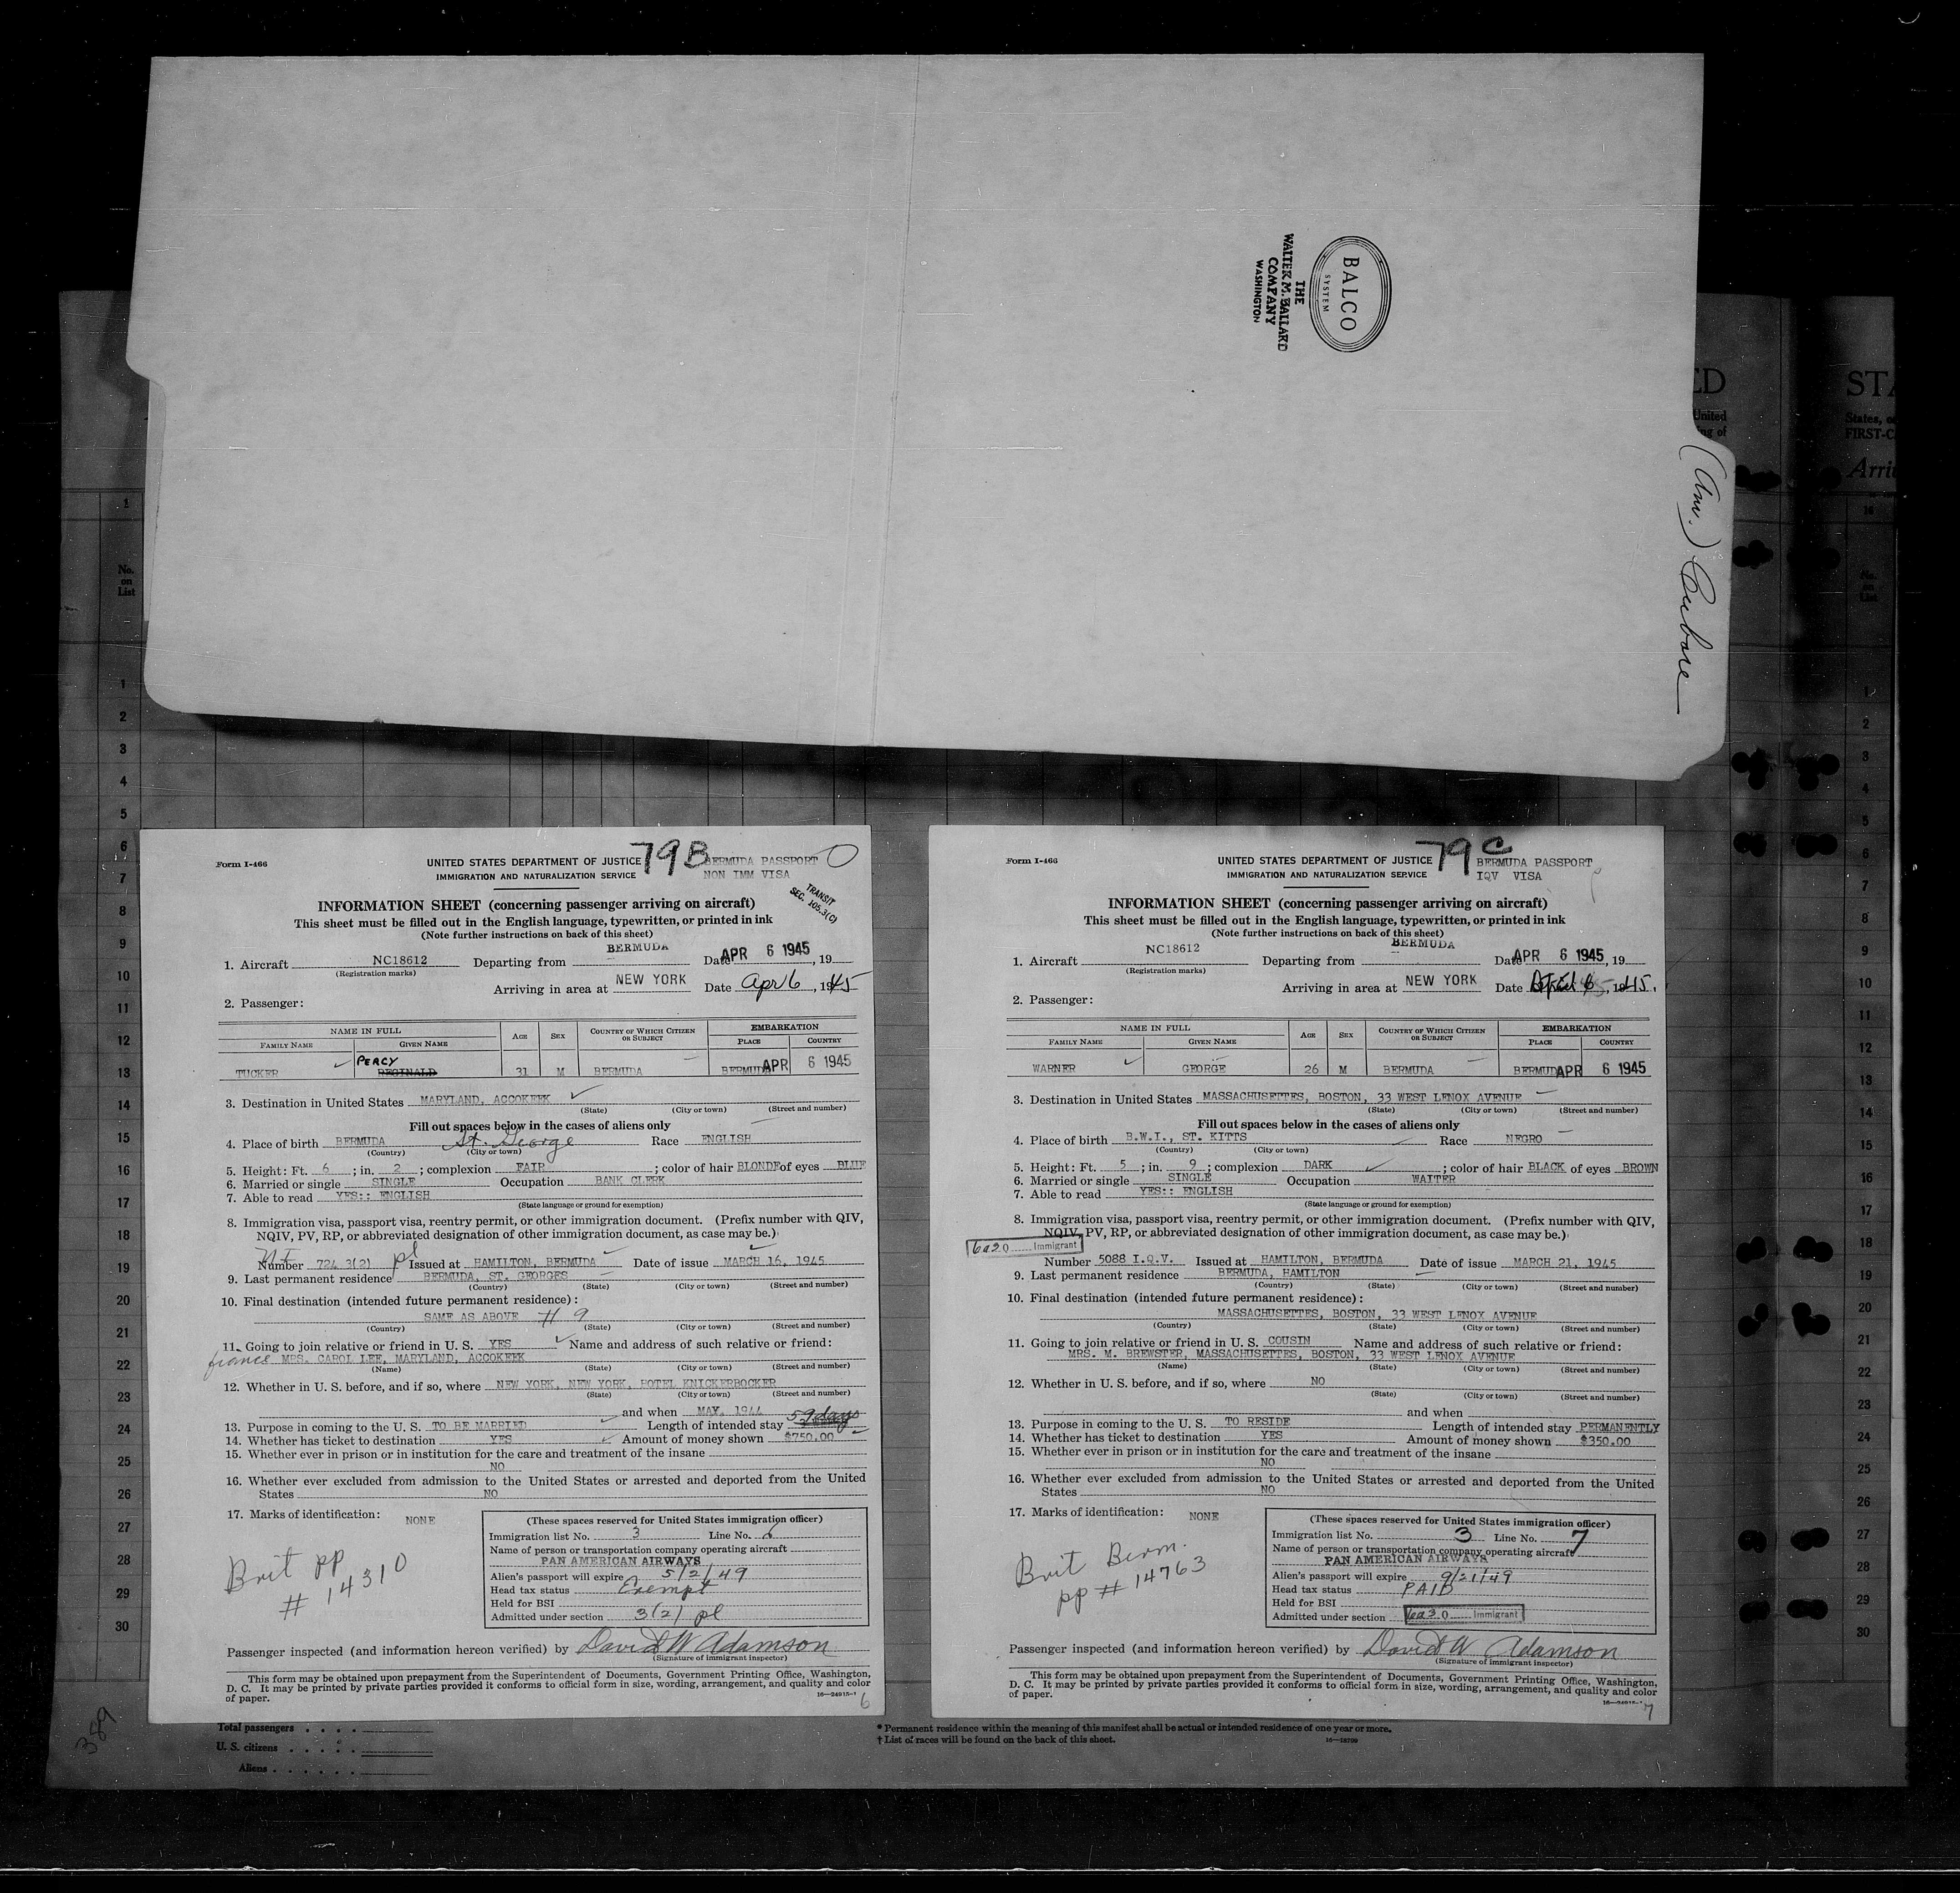 BALCO
SYSTEM
THE
WALTER M. BALLARD
COMPANY
WASHINGTON
(Am.)
ED
United
ing of
STA
States, o
FIRST-C
Arri
No.
on
List
1
1
2
3
4
5
6
7
8
9
10
11
12
13
14
15
16
17
18
19
20
21
22
23
24
25
26
27
28
29
30
Form I-466
UNITED STATES DEPARTMENT OF JUSTICE 79B BERMUDA PASSPORT
IMMIGRATION AND NATURALIZATION SERVICE NON IMM VISA
TRANSIT
SEC. 105.3(C)
INFORMATION SHEET (concerning passenger arriving on aircraft)
This sheet must be filled out in the English language, typewritten, or printed in ink
(Note further instructions on back of this sheet)
1. Aircraft NC18612 Departing from BERMUDA Date APR 6 1945, 19
(Registration marks)
Arriving in area at NEW YORK Date Apr 6, 1945
2. Passenger:
NAME IN FULL AGE SEX COUNTRY OF WHICH CITIZEN OR SUBJECT EMBARKATION
FAMILY NAME GIVEN NAME PLACE COUNTRY
PERCY
TUCKER REGINALD 31 M BERMUDA BERMUDA APR 6 1945
3. Destination in United States MARYLAND, ACCOKEEK
(State) (City or town) (Street and number)
Fill out spaces below in the cases of aliens only
4. Place of birth BERMUDA St. George Race ENGLISH
(Country) (City or town)
5. Height: Ft. 6; in. 2; complexion FAIR; color of hair BLONDE of eyes BLUE
6. Married or single SINGLE Occupation BANK CLERK
7. Able to read YES:: ENGLISH
(State language or ground for exemption)
8. Immigration visa, passport visa, reentry permit, or other immigration document. (Prefix number with QIV,
NQIV, PV, RP, or abbreviated designation of other immigration document, as case may be.)
Number 724 3(2) pl Issued at HAMILTON, BERMUDA Date of issue MARCH 16, 1945
9. Last permanent residence BERMUDA, ST. GEORGES
(Country) (State) (City or town) (Street and number)
10. Final destination (intended future permanent residence):
SAME AS ABOVE # 9
(Country) (State) (City or town) (Street and number)
11. Going to join relative or friend in U. S. YES Name and address of such relative or friend:
fiance MRS. CAROL LEE, MARYLAND, ACCOKEEK
(Name) (State) (City or town) (Street and number)
12. Whether in U. S. before, and if so, where NEW YORK, NEW YORK, HOTEL KNICKERBOCKER
(State) (City or town) (Street and number)
and when MAY, 1944
13. Purpose in coming to the U. S. TO BE MARRIED Length of intended stay 59 days
14. Whether has ticket to destination YES Amount of money shown $750.00
15. Whether ever in prison or in institution for the care and treatment of the insane
NO
16. Whether ever excluded from admission to the United States or arrested and deported from the United
States NO
17. Marks of identification: NONE
Brit pp
# 14310
(These spaces reserved for United States immigration officer)
Immigration list No. 3 Line No. 6
Name of person or transportation company operating aircraft
PAN AMERICAN AIRWAYS
Alien's passport will expire 5/2/49
Head tax status Exempt
Held for BSI
Admitted under section 3(2) pl
Passenger inspected (and information hereon verified) by David W Adamson
(Signature of immigrant inspector)
This form may be obtained upon prepayment from the Superintendent of Documents, Government Printing Office, Washington,
D. C. It may be printed by private parties provided it conforms to official form in size, wording, arrangement, and quality and color
of paper. 16—24915-1
6
Form I-466
UNITED STATES DEPARTMENT OF JUSTICE 79C BERMUDA PASSPORT
IMMIGRATION AND NATURALIZATION SERVICE IQV VISA
INFORMATION SHEET (concerning passenger arriving on aircraft)
This sheet must be filled out in the English language, typewritten, or printed in ink
(Note further instructions on back of this sheet)
1. Aircraft NC18612 Departing from BERMUDA Date APR 6 1945, 19
(Registration marks)
Arriving in area at NEW YORK Date 6, 1945.
2. Passenger:
NAME IN FULL AGE SEX COUNTRY OF WHICH CITIZEN OR SUBJECT EMBARKATION
FAMILY NAME GIVEN NAME PLACE COUNTRY
WARNER GEORGE 26 M BERMUDA BERMUDA APR 6 1945
3. Destination in United States MASSACHUSETTES, BOSTON, 33 WEST LENOX AVENUE
(State) (City or town) (Street and number)
Fill out spaces below in the cases of aliens only
4. Place of birth B.W.I., ST. KITTS Race NEGRO
(Country) (City or town)
5. Height: Ft. 5; in. 9; complexion DARK; color of hair BLACK of eyes BROWN
6. Married or single SINGLE Occupation WAITER
7. Able to read YES:: ENGLISH
(State language or ground for exemption)
8. Immigration visa, passport visa, reentry permit, or other immigration document. (Prefix number with QIV,
NQIV, PV, RP, or abbreviated designation of other immigration document, as case may be.)
6a30 Immigrant
Number 5088 I.Q.V. Issued at HAMILTON, BERMUDA Date of issue MARCH 21, 1945
9. Last permanent residence BERMUDA, HAMILTON
(Country) (State) (City or town) (Street and number)
10. Final destination (intended future permanent residence):
MASSACHUSETTES, BOSTON, 33 WEST LENOX AVENUE
(Country) (State) (City or town) (Street and number)
11. Going to join relative or friend in U. S. COUSIN Name and address of such relative or friend:
MRS. M. BREWSTER, MASSACHUSETTES, BOSTON, 33 WEST LENOX AVENUE
(Name) (State) (City or town) (Street and number)
12. Whether in U. S. before, and if so, where NO
(State) (City or town) (Street and number)
and when
13. Purpose in coming to the U. S. TO RESIDE Length of intended stay PERMANENTLY
14. Whether has ticket to destination YES Amount of money shown $350.00
15. Whether ever in prison or in institution for the care and treatment of the insane
NO
16. Whether ever excluded from admission to the United States or arrested and deported from the United
States NO
17. Marks of identification: NONE
Brit Berm.
pp # 14763
(These spaces reserved for United States immigration officer)
Immigration list No. 3 Line No. 7
Name of person or transportation company operating aircraft
PAN AMERICAN AIRWAYS
Alien's passport will expire 9/21/49
Head tax status PAID
Held for BSI
Admitted under section 6a30 Immigrant
Passenger inspected (and information hereon verified) by David W Adamson
(Signature of immigrant inspector)
This form may be obtained upon prepayment from the Superintendent of Documents, Government Printing Office, Washington,
D. C. It may be printed by private parties provided it conforms to official form in size, wording, arrangement, and quality and color
of paper.
7
16
No.
on
List
1
2
3
4
5
6
7
8
9
10
11
12
13
14
15
16
17
18
19
20
21
22
23
24
25
26
27
28
29
30
389
Total passengers
U. S. citizens
Aliens
* Permanent residence within the meaning of this manifest shall be actual or intended residence of one year or more.
† List of races will be found on the back of this sheet.